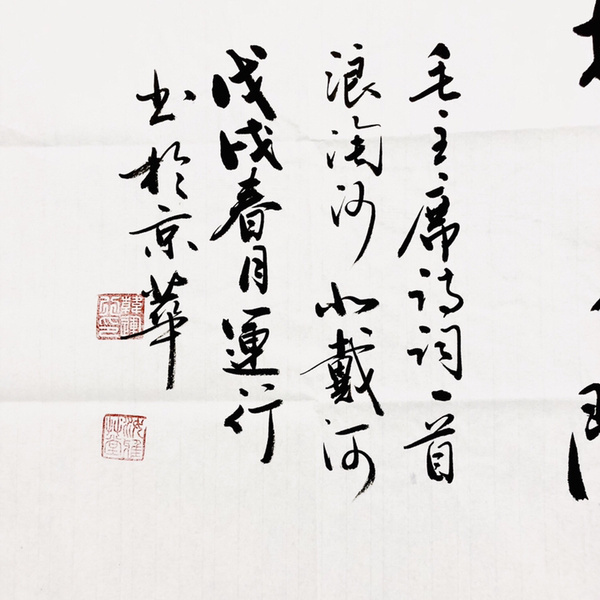 毛主席诗词一首
浪淘沙北戴河
戊戌春月運行
书於京華